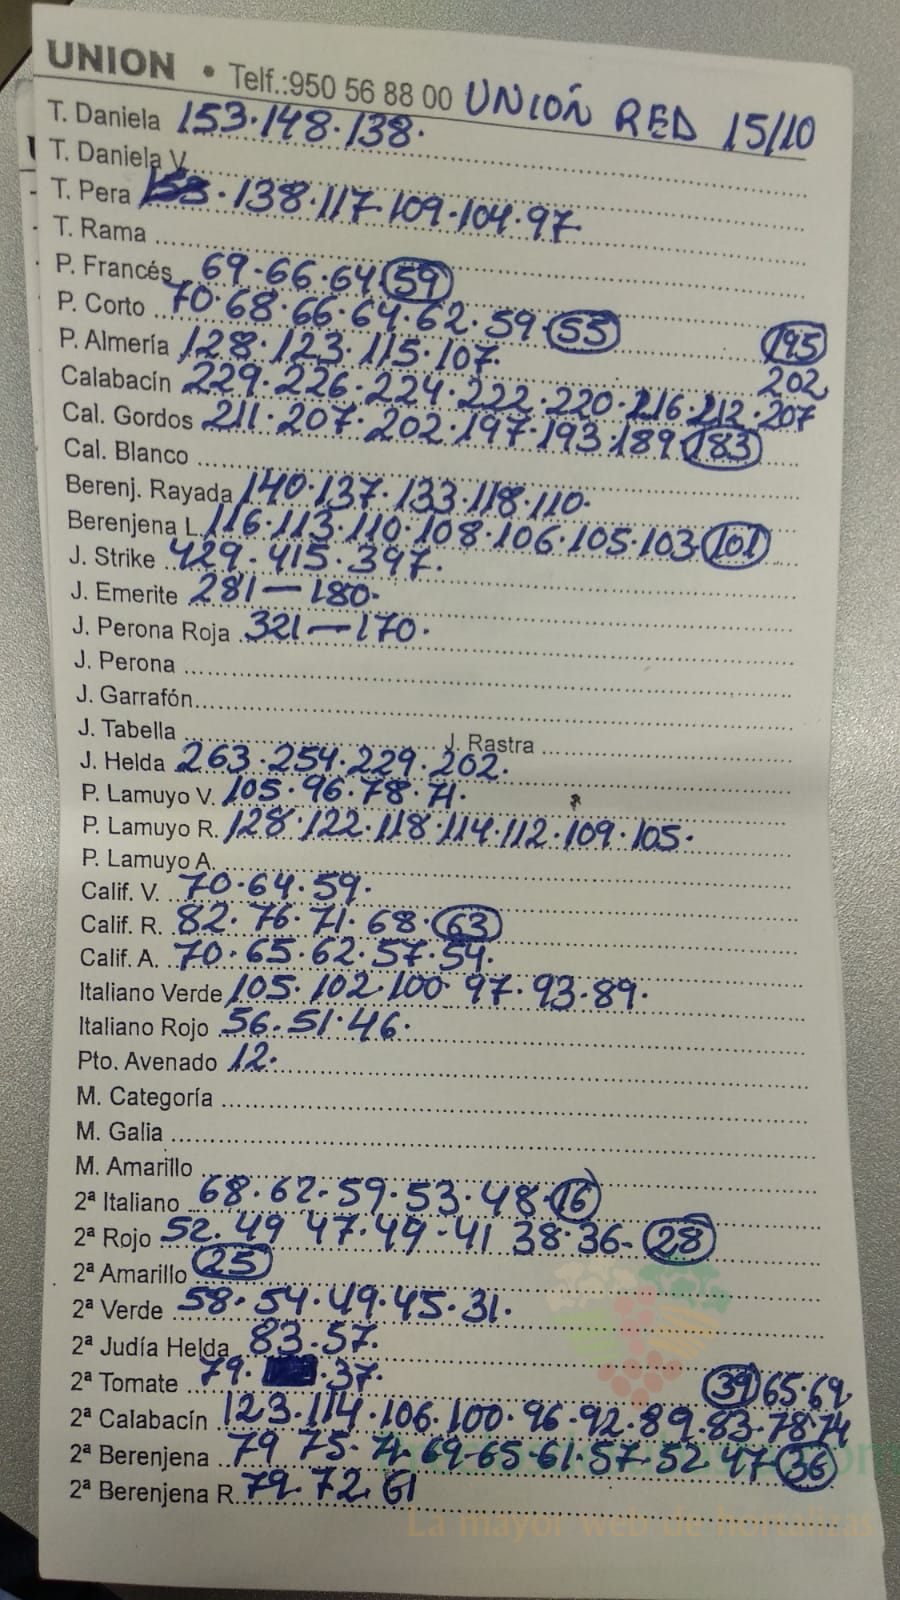 UNION • Telf.:950 56 88 00 UNIOÑ RED 15/10
T. Daniela 153.148.138.
T. Daniela V.
T. Pera 153.138.117.109.104.97.
T. Rama
P. Francés 69.66.64.59
P. Corto 70.68.66.64.62.59.55
195
P. Almería 128.123.115.107.
202
Calabacín 229.226.224.222.220.216.212.207
Cal. Gordos 211.207.202.197.193.189.183
Cal. Blanco
Berenj. Rayada 140.137.133.118.110.
Berenjena L. 116.113.110.108.106.105.103.101
J. Strike 429.415.397.
J. Emerite 281—180.
J. Perona Roja 321—170.
J. Perona
J. Garrafón
J. Tabella J. Rastra
J. Helda 263.254.229.202.
P. Lamuyo V. 105.96.78.71.
P. Lamuyo R. 128.122.118.114.112.109.105.
P. Lamuyo A.
Calif. V. 70.64.59.
Calif. R. 82.76.71.68.63
Calif. A. 70.65.62.57.54.
Italiano Verde 105.102.100.97.93.89.
Italiano Rojo 56.51.46.
Pto. Avenado 12.
M. Categoría
M. Galia
M. Amarillo
2ª Italiano 68.62.59.53.48.16
2ª Rojo 52.49 47.49.41 38.36.28
2ª Amarillo 25
2ª Verde 58.54.49.45.31.
2ª Judía Helda 83.57.
2ª Tomate 79. .37.
39 65.69
2ª Calabacín 123.114.106.100.96.92.89.83.78.74
2ª Berenjena 79 75.71.69.65.61.57.52.47.36
2ª Berenjena R. 79.72.61
La mayor web de hortalizas